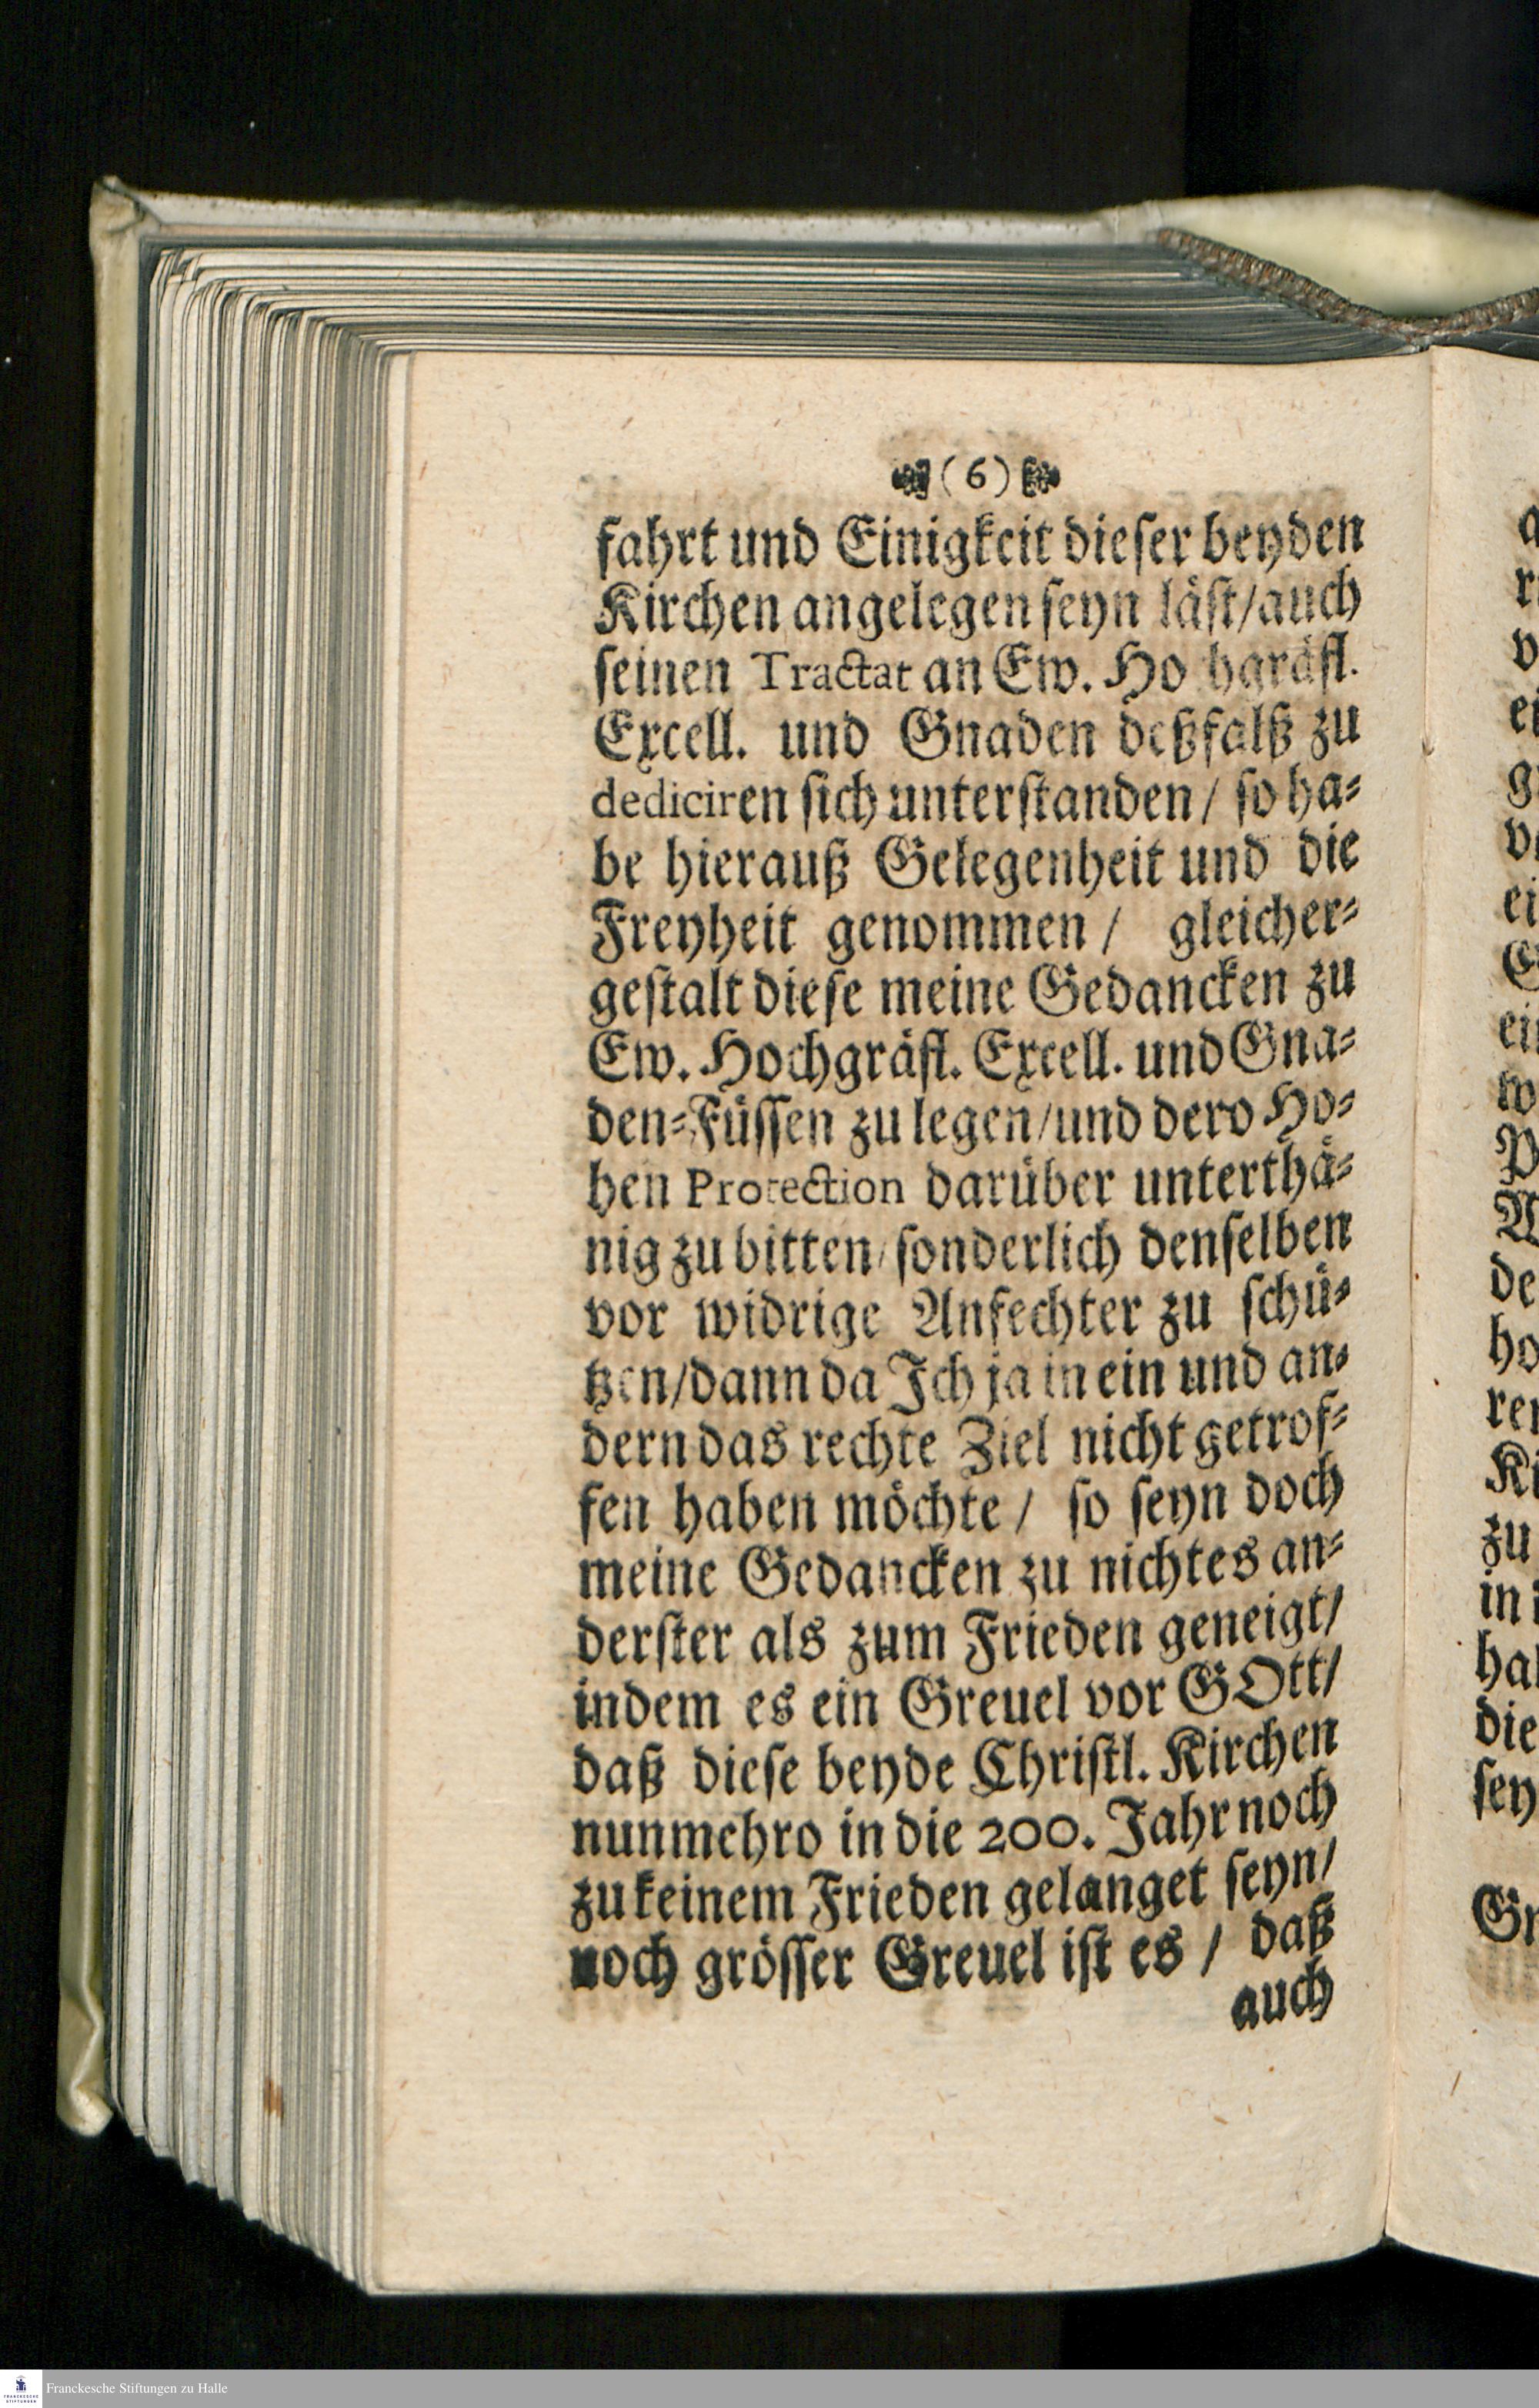 (6)
fahrt und Einigkeit dieser beyden
Kirchen angelegen seyn läst/auch
seinen Tractat an Ew. Ho hgräfl.
Excell. und Gnaden deßfalß zu
dediciren sich unterstanden/ so ha-
be hierauß Gelegenheit und die
Freyheit genommen/ gleicher-
gestalt diese meine Gedancken zu
Ew. Hochgräfl. Excell. und Gna-
den-Füssen zu legen/und dero Ho-
hen Protection darüber unterthä-
nig zu bitten/sonderlich denselben
vor widrige Anfechter zu schü-
tzen/dann da Ich ja in ein und an-
dern das rechte Ziel nicht getrof-
fen haben möchte/ so seyn doch
meine Gedancken zu nichtes an-
derster als zum Frieden geneigt/
indem es ein Greuel vor GOtt/
daß diese beyde Christl. Kirchen
nunmehro in die 200. Jahr noch
zu keinem Frieden gelanget seyn/
noch grösser Greuel ist es/ daß
auch
Franckesche Stiftungen zu Halle